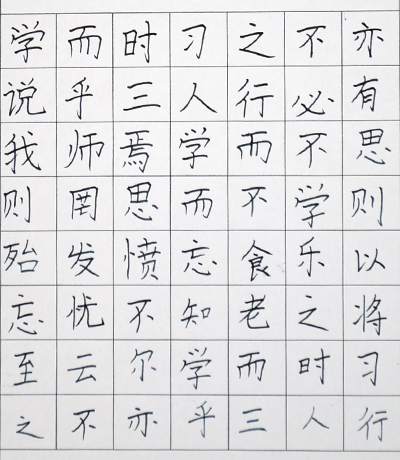 学而时习之不亦
说乎三人行必有
我师焉学而不思
则罔思而不学则
殆发愤忘食乐以
忘忧不知老之将
至云尔学而时习
之不亦乎三人行